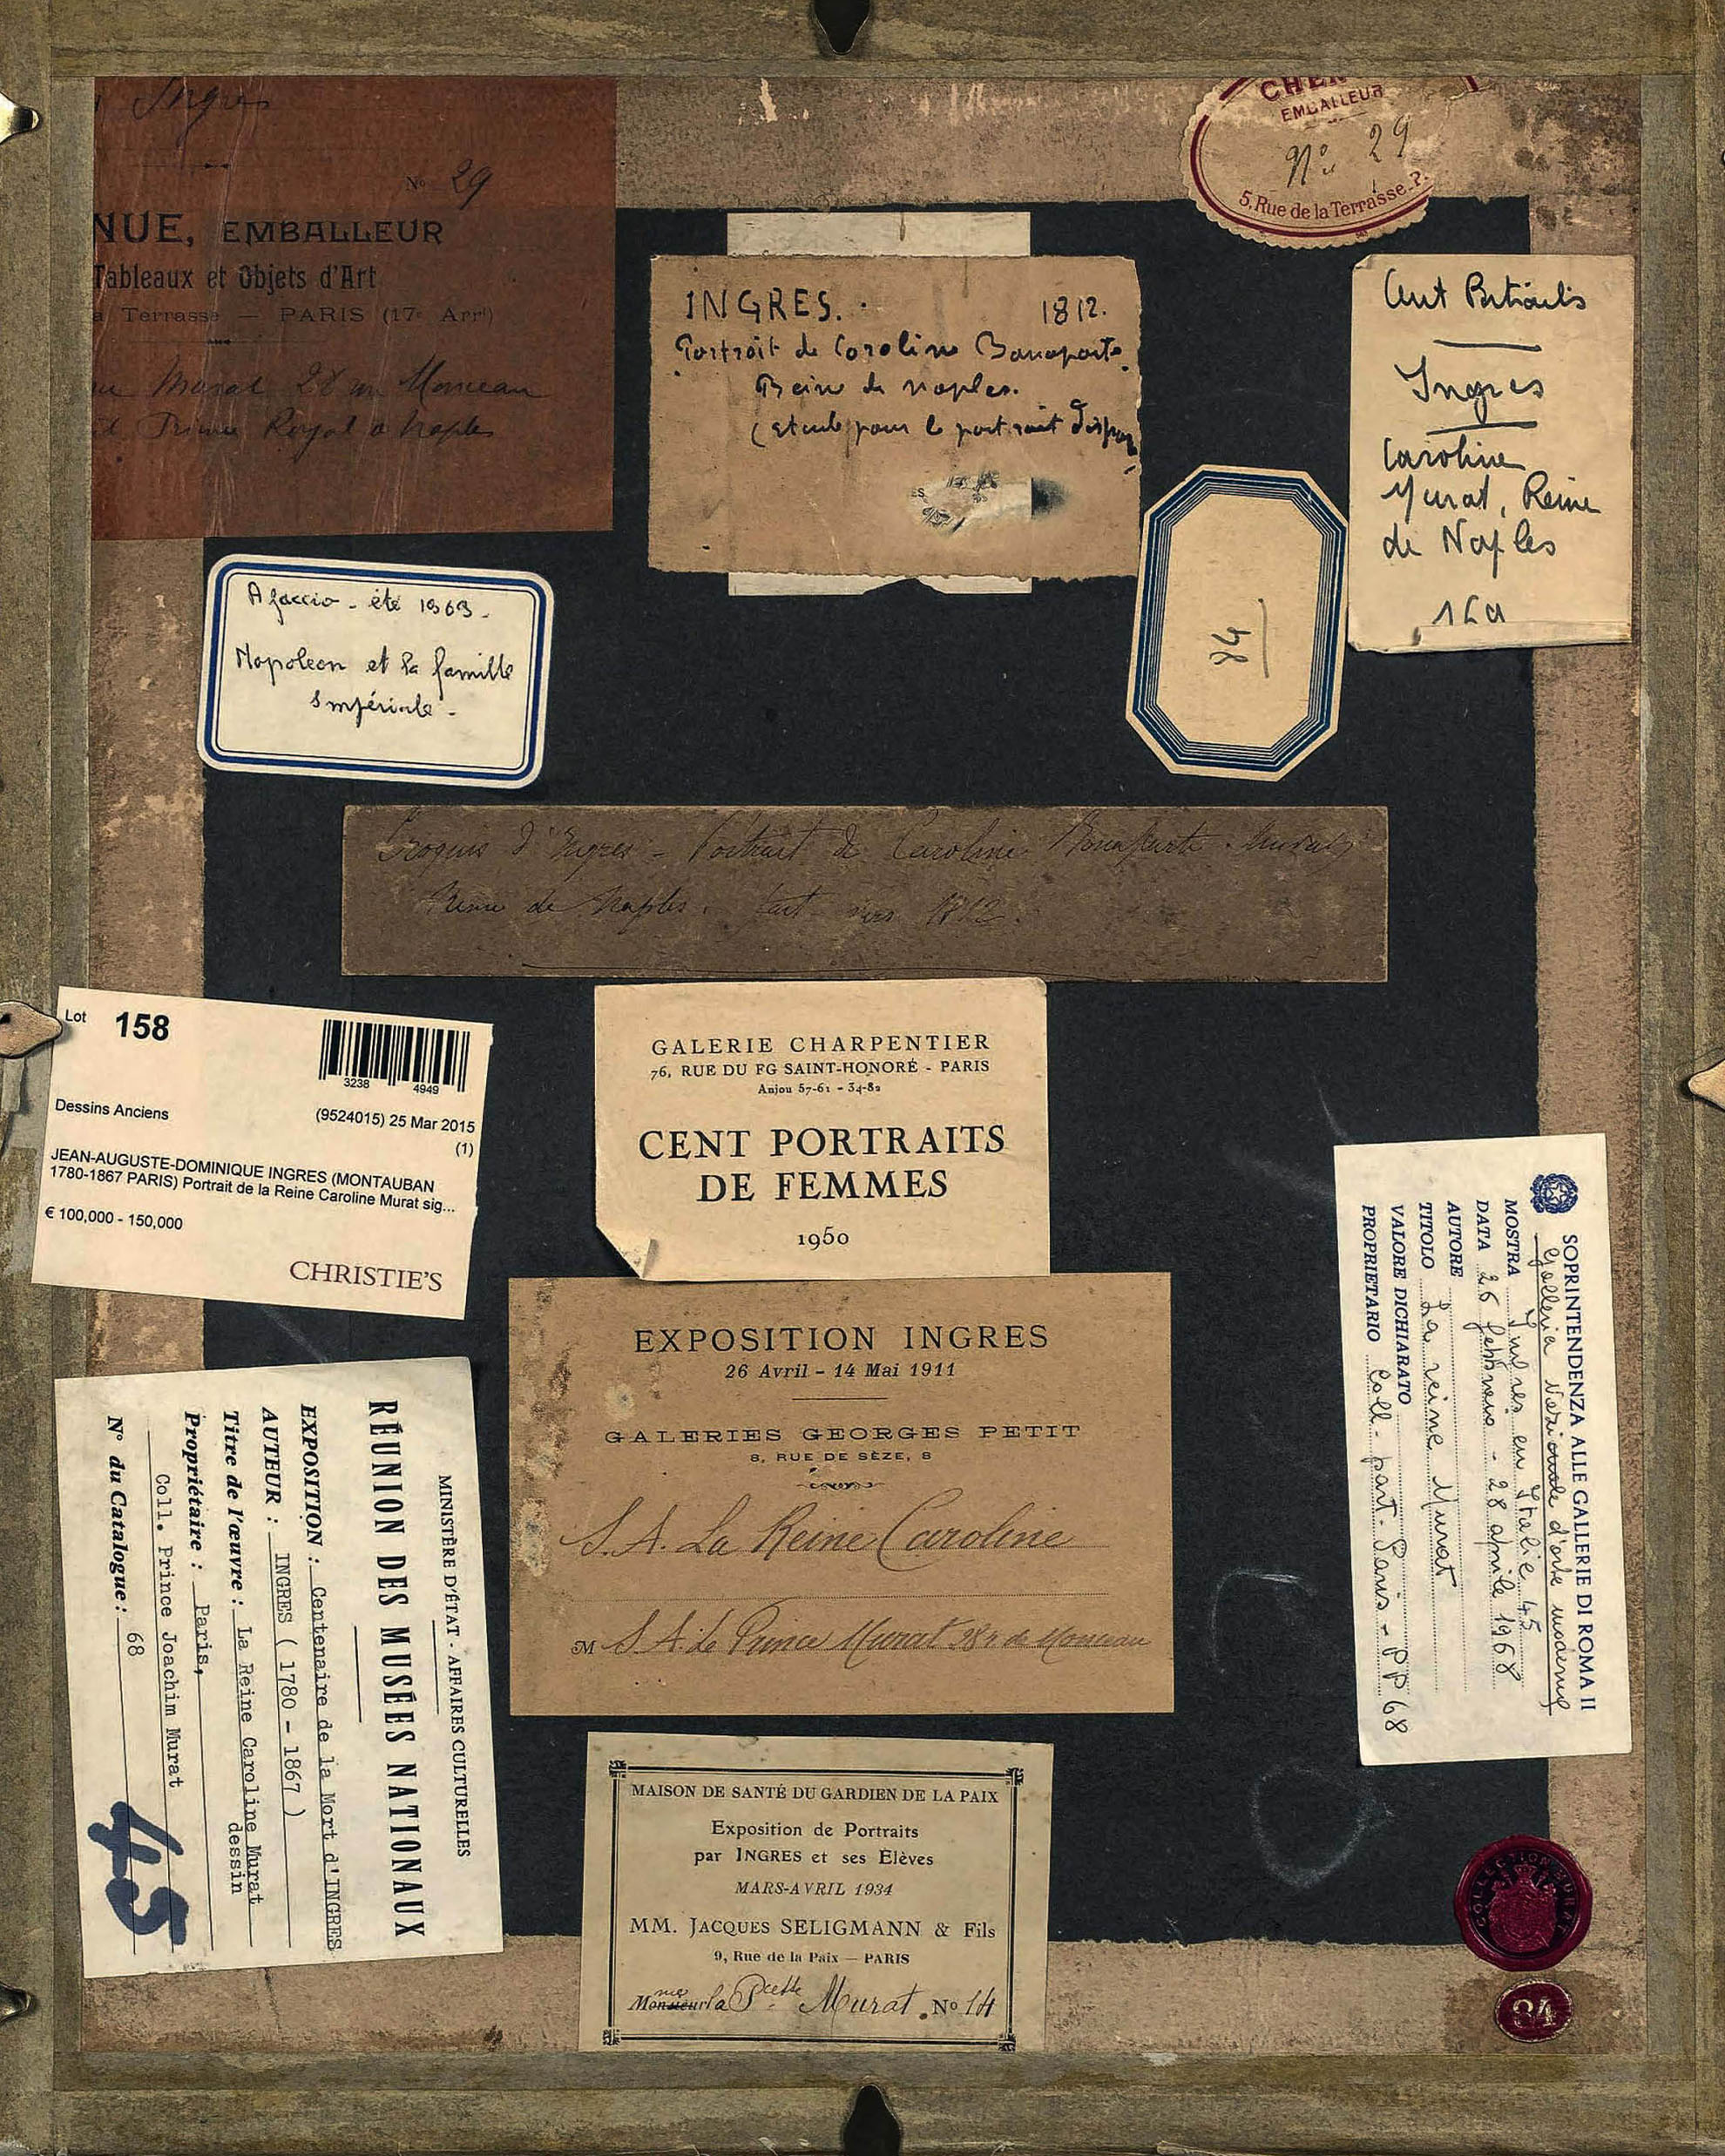 Ingres
No 29
NUE, EMBALLEUR
Tableaux et Objets d'Art
a Terrasse — PARIS (17e Arrt)
Murat 28 Monceau
Prince Royal à Naples
CHE
EMBALLEUR
No. 29
5, Rue de la Terrasse. P.
INGRES. 1812.
Portrait de Caroline Bonaparte
Reine de Naples.
(étude pour le portrait
Cent Portraits
Ingres
Caroline
Murat, Reine
de Naples
Ajaccio - été 1969 -
Napoléon et la famille
Impériale -
84
Croquis d'Ingres - Portrait de Caroline Bonaparte - Murat
Reine de Naples. fait vers 1812.
Lot 158
3238 4949
Dessins Anciens (9524015) 25 Mar 2015
(1)
JEAN-AUGUSTE-DOMINIQUE INGRES (MONTAUBAN
1780-1867 PARIS) Portrait de la Reine Caroline Murat sig...
€ 100,000 - 150,000
CHRISTIE'S
GALERIE CHARPENTIER
76, RUE DU FG SAINT-HONORÉ - PARIS
Anjou 57-61 - 34-82
CENT PORTRAITS
DE FEMMES
1950
SOPRINTENDENZA ALLE GALLERIE DI ROMA II
Galleria Nazionale d'arte moderna
MOSTRA Ingres en Italie 45
DATA 26 febbraio - 28 aprile 1968
AUTORE
TITOLO La reine Murat
VALORE DICHIARATO
PROPRIETARIO Coll. part. Paris - PP 68
EXPOSITION INGRES
26 Avril - 14 Mai 1911
GALERIES GEORGES PETIT
8, RUE DE SÈZE, 8
S. A. La Reine Caroline
M S. A. Le Prince Murat 28 r. de Monceau
MINISTÈRE D'ÉTAT - AFFAIRES CULTURELLES
RÉUNION DES MUSÉES NATIONAUX
EXPOSITION : Centenaire de la Mort d'INGRES
AUTEUR : INGRES ( 1780 - 1867 )
Titre de l'œuvre : La Reine Caroline Murat
dessin
Propriétaire : Paris,
Coll. Prince Joachim Murat
N° du Catalogue : 68
45
MAISON DE SANTÉ DU GARDIEN DE LA PAIX
Exposition de Portraits
par INGRES et ses Élèves
MARS-AVRIL 1934
MM. JACQUES SELIGMANN & Fils
9, Rue de la Paix — PARIS
Monsieur me la Pcesse Murat. No 14
COLLECTION MURAT
84